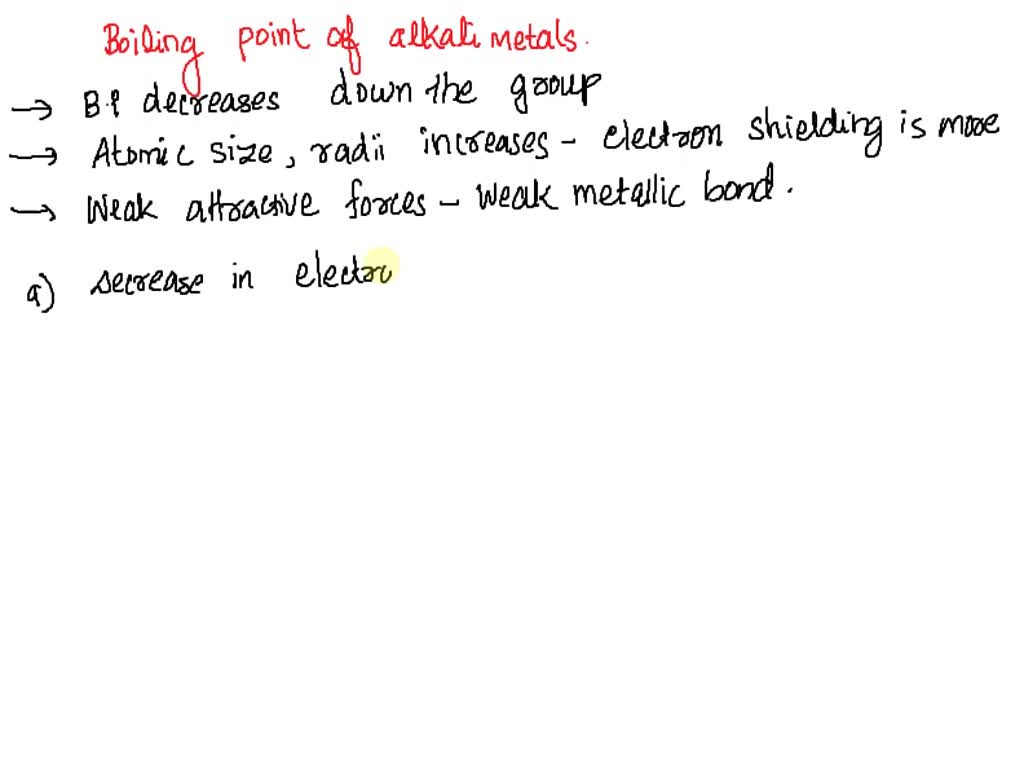 Boiling point of alkali metals.
→ B.P decreases down the group
→ Atomic size, radii increases - electron shielding is more
→ Weak attractive forces - weak metallic bond.
a) decrease in electro